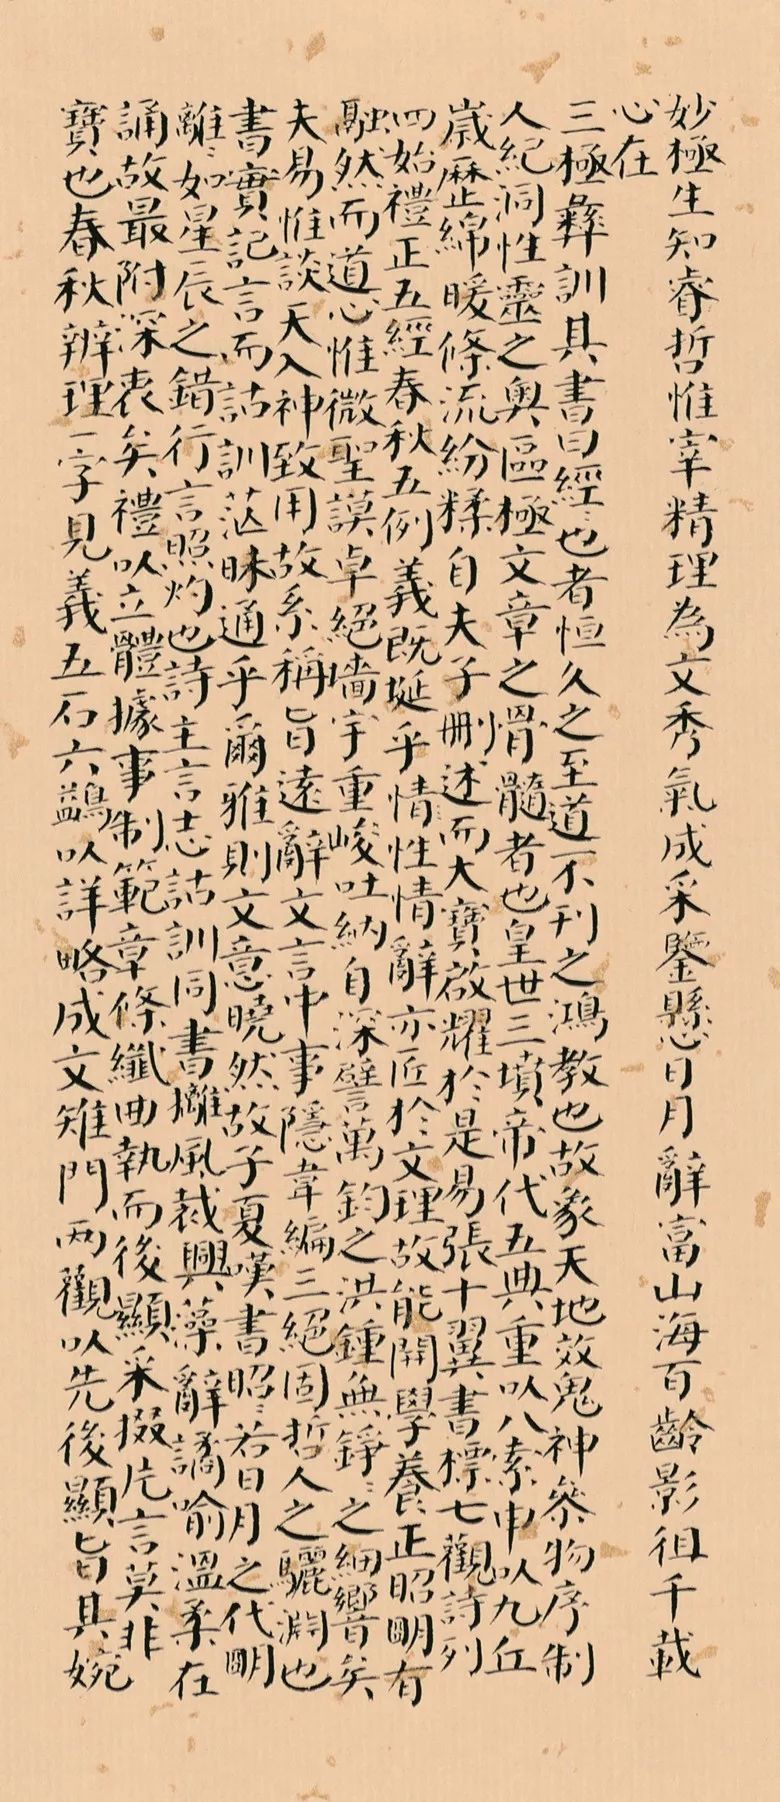 妙極生知睿哲惟宰精理為文秀氣成采鑒懸日月辭富山海百齡影徂千載
心在
三極彝訓其書曰經〻也者恒久之至道不刊之鴻教也故象天地效鬼神參物序制
人紀洞性靈之奧區極文章之骨髓者也皇世三墳帝代五典重以八索申以九丘
歲歷綿曖條流紛糅自夫子刪述而大寶啟耀於是易張十翼書標七觀詩列
四始禮正五經春秋五例義既埏乎情性情辭亦匠於文理故能開學養正昭明有
融然而道心惟微聖謨卓絕墻宇重峻吐納自深譬萬鈞之洪鍾無錚〻之細響矣
夫易惟談天入神致用故系稱旨遠辭文言中事隱韋編三絕固哲人之驪淵也
書實記言而詁訓茫昧通乎爾雅則文意曉然故子夏嘆書昭〻若日月之代明
離〻如星辰之錯行言照灼也詩主言志詁訓同書摛風裁興藻辭譎喻溫柔在
誦故最附深衷矣禮以立體據事制範章條纖曲執而後顯采掇片言莫非
寶也春秋辨理一字見義五石六鷁以詳略成文雉門两觀以先後顯旨其婉